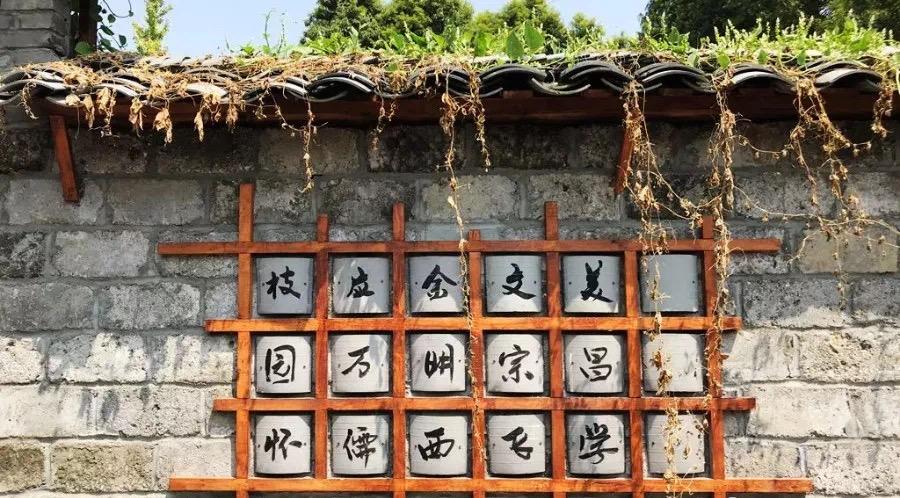 枝应金文美
园万明宗昌
怀儒西学